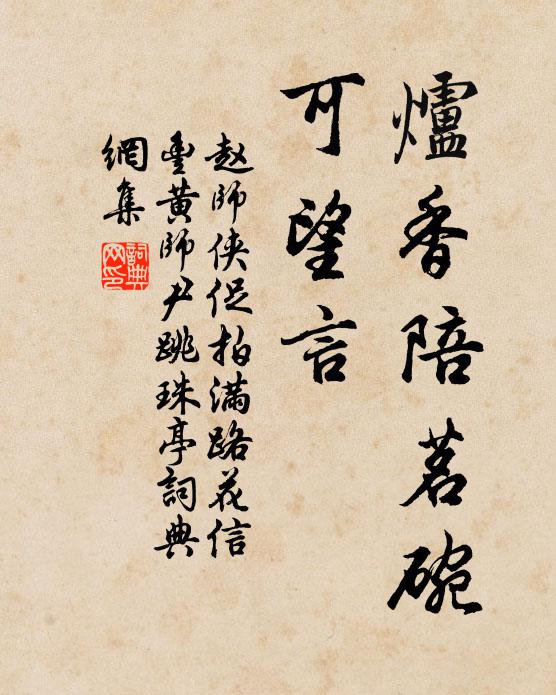 爐香陪茗碗
可望言
赵師侠促拍滿路花信
豊黄師尹跳珠亭詞典
網集
詞典
网印